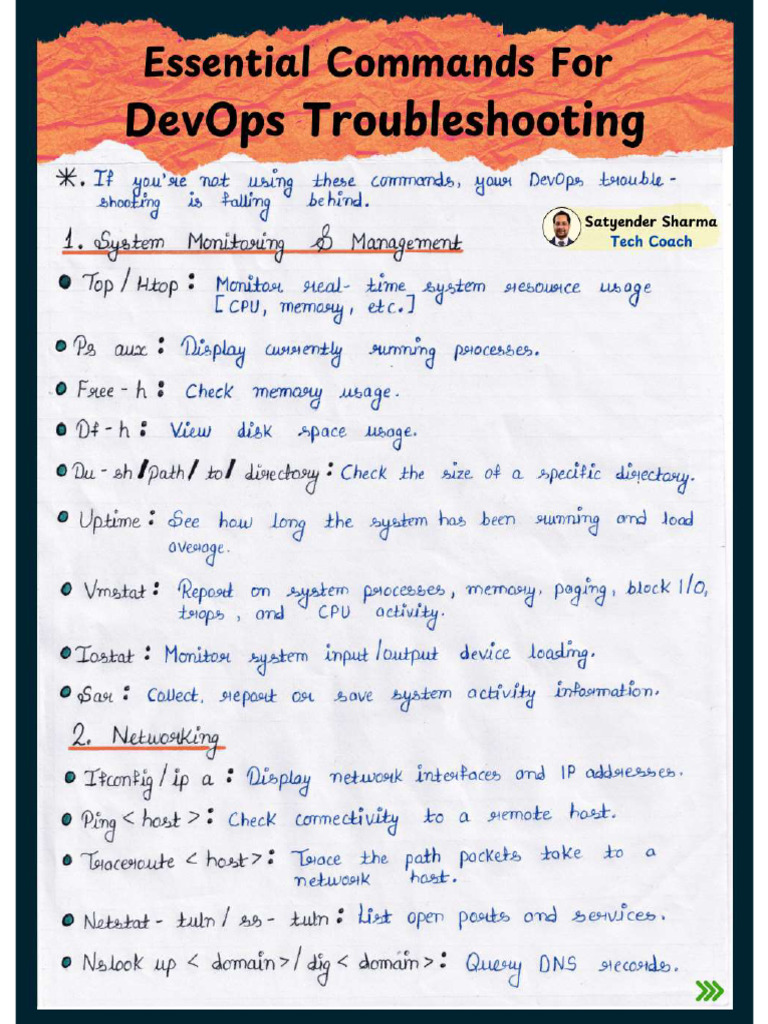 Essential Commands For
DevOps Troubleshooting
*. If you're not using these commands, your DevOps trouble-
shooting is falling behind.
Satyender Sharma
Tech Coach
1. System Monitoring & Management
• Top / Htop : Monitor real-time system resource usage
[CPU, memory, etc.]
• Ps aux : Display currently running processes.
• Free - h : Check memory usage.
• Df - h : View disk space usage.
• Du - sh /path/ to/ directory : Check the size of a specific directory.
• Uptime : See how long the system has been running and load
average.
• Vmstat : Report on system processes, memory, paging, block I/O,
traps, and CPU activity.
• Iostat : Monitor system input/output device loading.
• Sar : Collect, report or save system activity information.
2. Networking
• Ifconfig / ip a : Display network interfaces and IP addresses.
• Ping < host > : Check connectivity to a remote host.
• Traceroute < host > : Trace the path packets take to a
network host.
• Netstat - tuln / ss - tuln : List open ports and services.
• Nslook up < domain > / dig < domain > : Query DNS records.